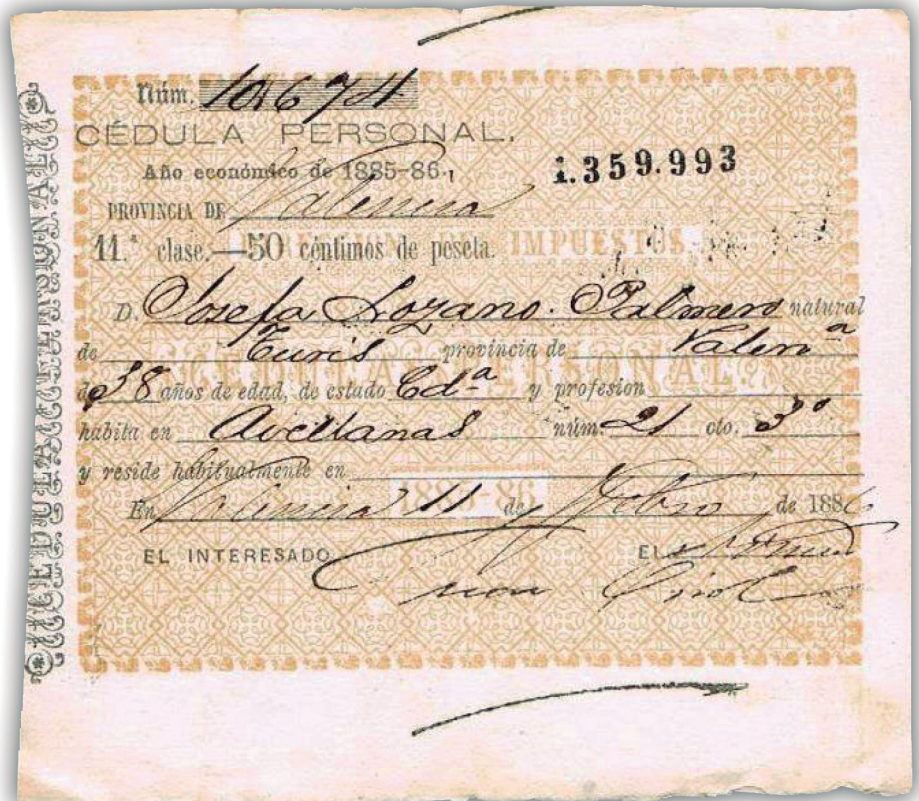 Núm. 10674
CÉDULA PERSONAL.
Año económico de 1885-86.
1.359.993
PROVINCIA DE Valencia
11.ª clase.—50 céntimos de peseta.
IMPUESTOS.
D. Josefa Lozano. Palmero natural
de Turis provincia de Valenª
de 38 años de edad, de estado Cdª y profesion
habita en Avellanas núm. 21 cto. 3º
y reside habitualmente en
1885-86
En Valencia 11 de Febro de 1886
EL INTERESADO
El
CEDULA PERSONAL
CEDULA PERSONAL